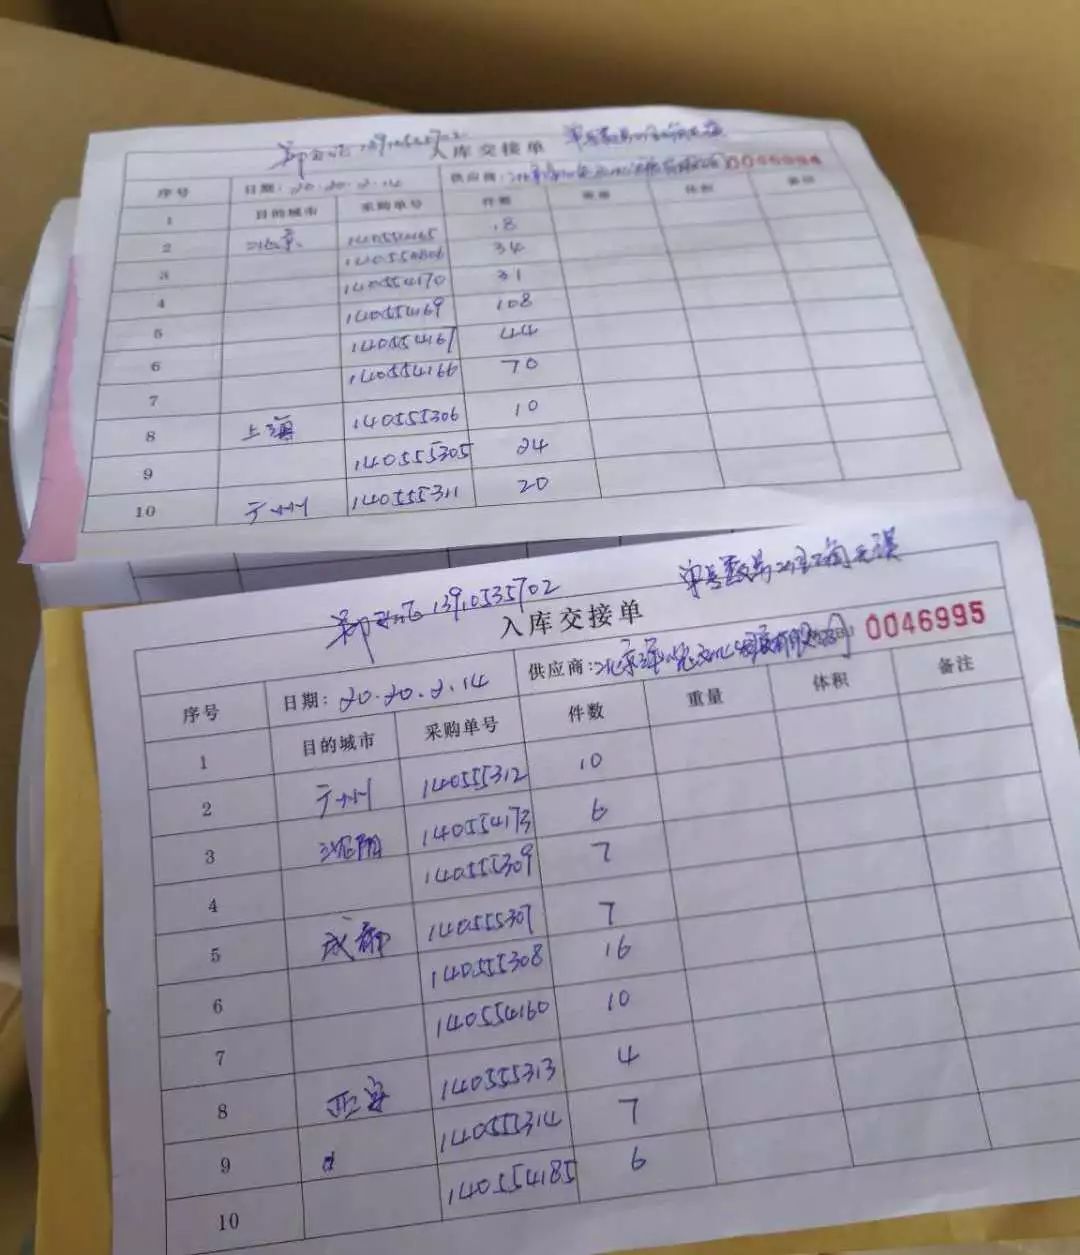 入库交接单
序号 日期: 20.20.2.14 供应商: 0046994
目的城市 采购单号 件数 重量 体积 备注
1 北京 140554165 18
2 34
3 140554170 31
4 140554169 108
5 140554167 44
6 140554166 70
7
8 上海 140555306 10
9 140555305 24
10 广州 140555311 20
1390535702 单号数易
入库交接单
序号 日期: 20.20.2.14 供应商: 北京 0046995
目的城市 采购单号 件数 重量 体积 备注
1 广州 140555312 10
2 沈阳 140554173 6
3 140555309 7
4
5 成都 140555307 7
6 140555308 16
7 140554160 10
8 西安 140555313 4
9 140555314 7
10 140554185 6